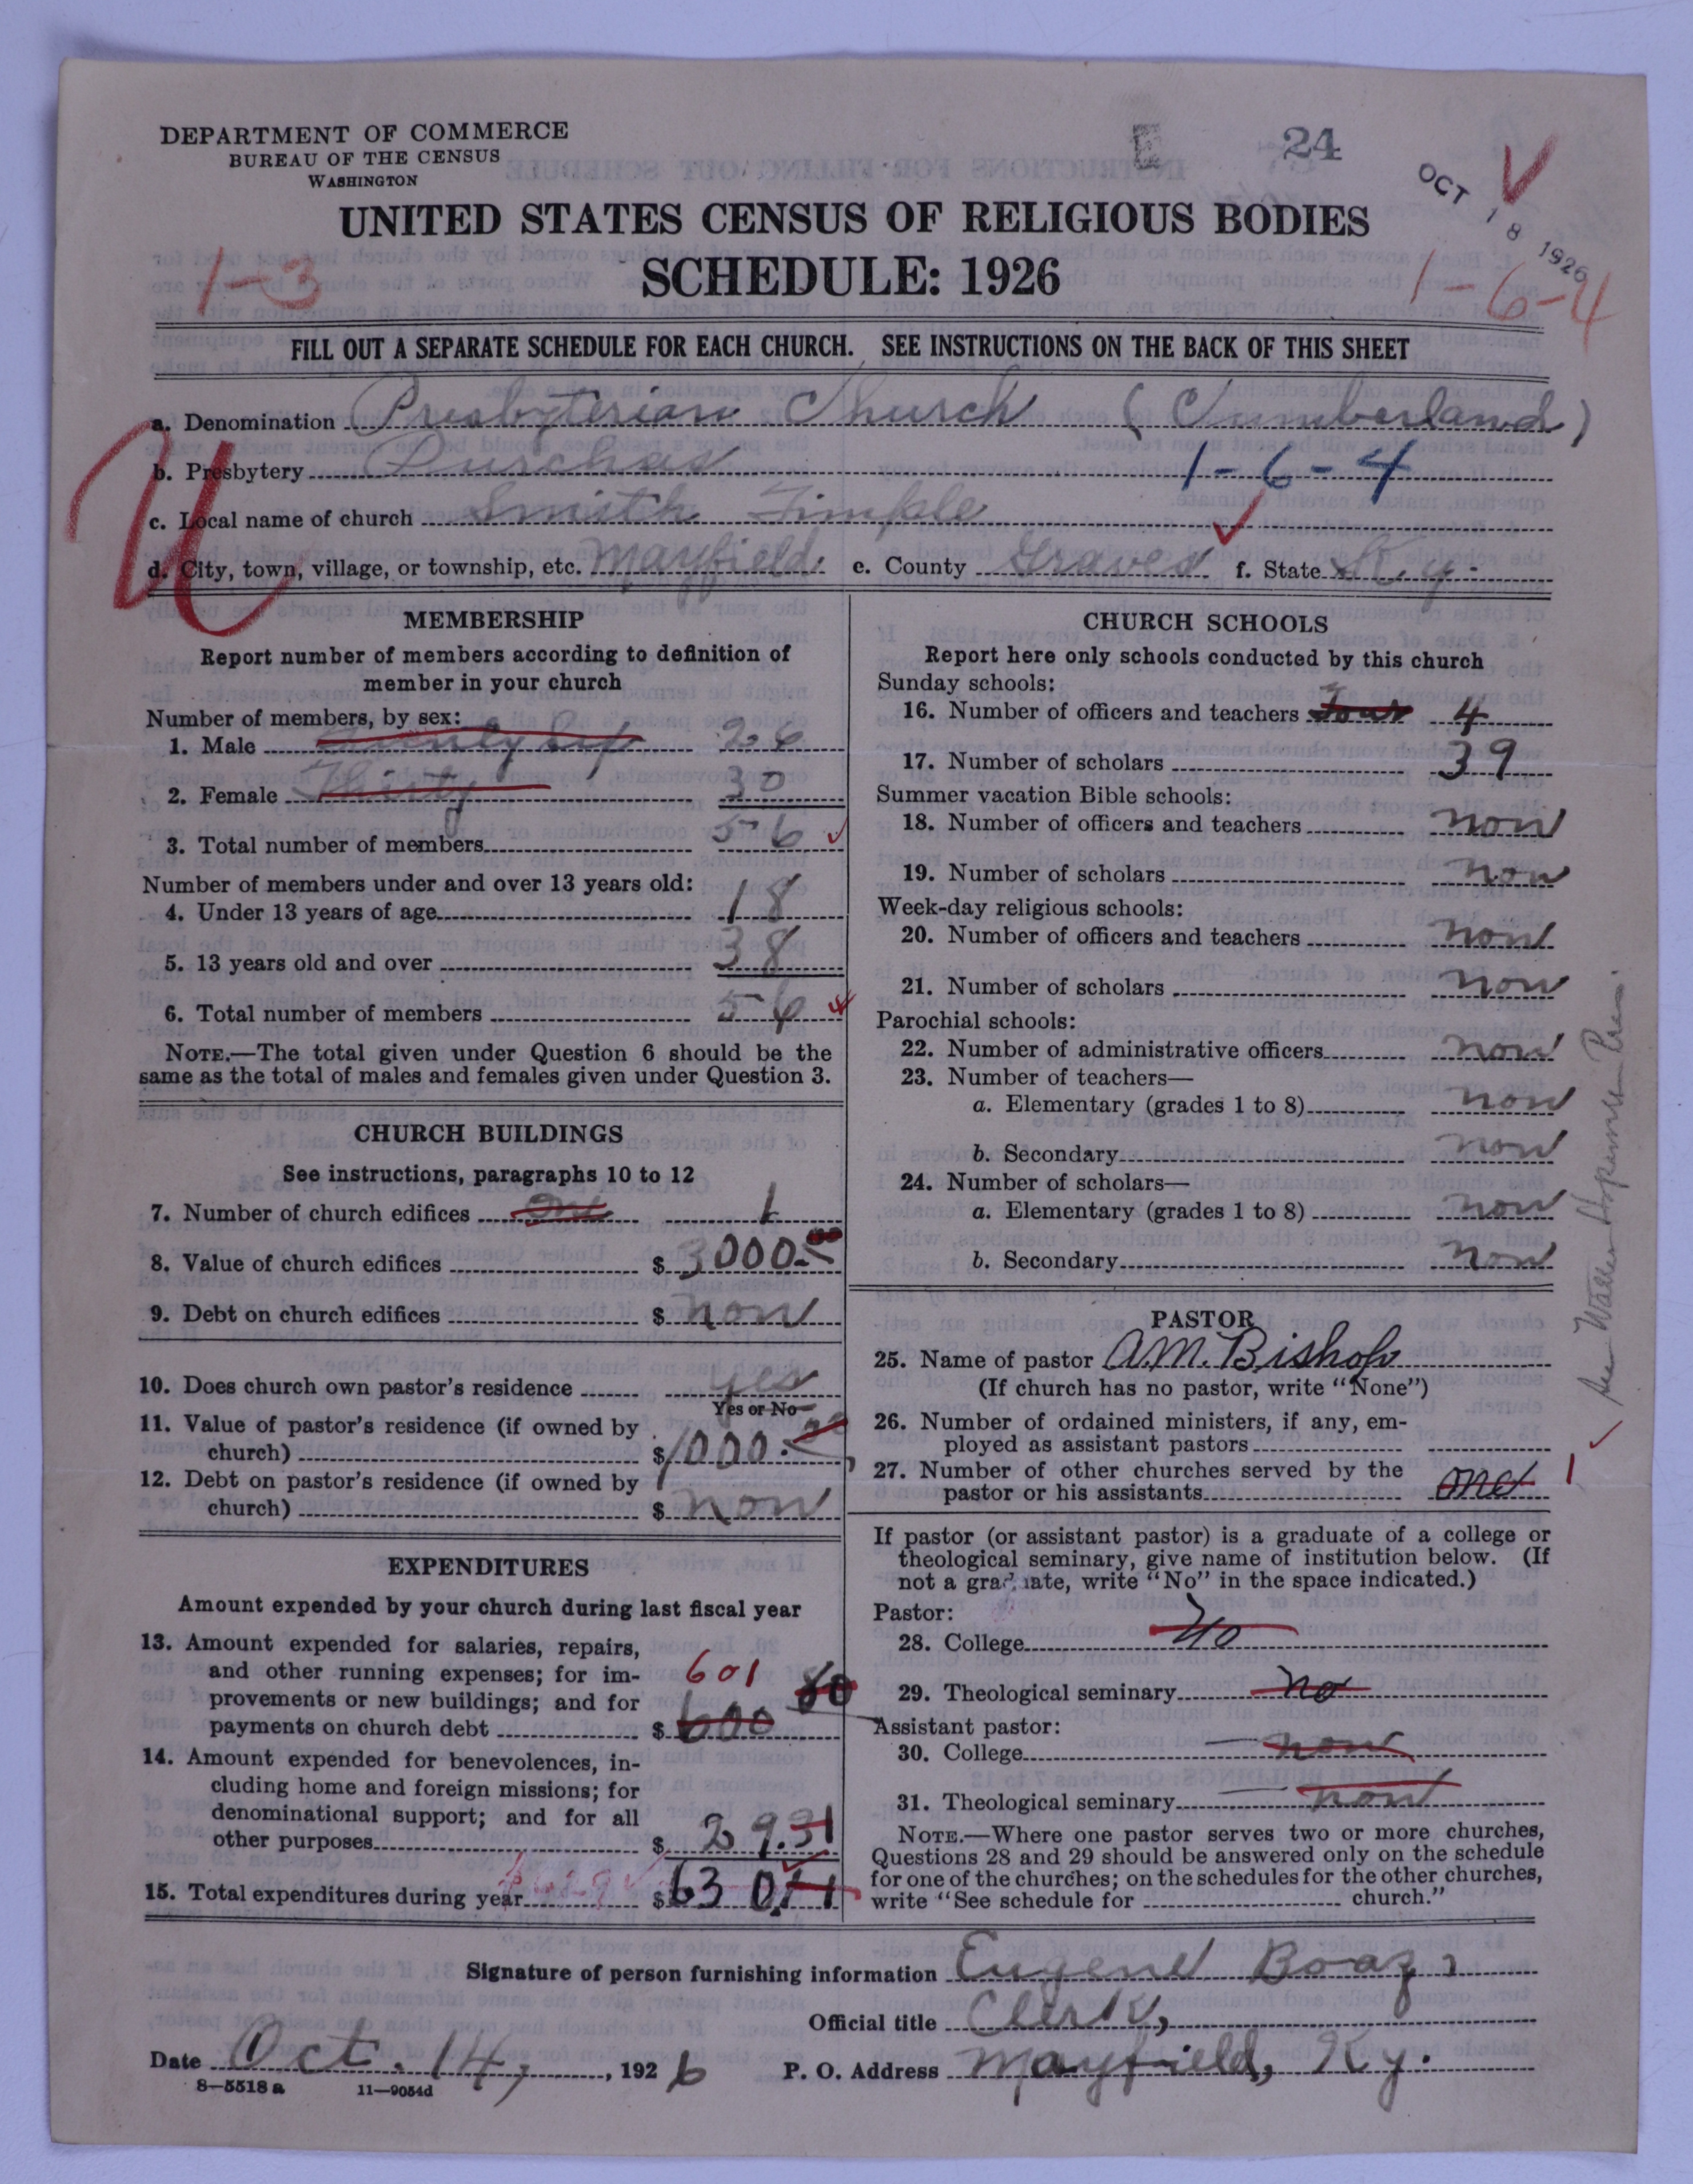 DEPARTMENT OF COMMERCE
BUREAU OF THE CENSUS
WASHINGTON
E 24
OCT 18 1926
UNITED STATES CENSUS OF RELIGIOUS BODIES
SCHEDULE: 1926
1-3
1-6-4
FILL OUT A SEPARATE SCHEDULE FOR EACH CHURCH. SEE INSTRUCTIONS ON THE BACK OF THIS SHEET
a. Denomination Presbyterian Church (Cumberland)
b. Presbytery 1-6-4
c. Local name of church Smith Timple
d. City, town, village, or township, etc. Mayfield e. County Graves f. State Ky.
U
MEMBERSHIP
Report number of members according to definition of
member in your church
Number of members, by sex:
1. Male 26
2. Female Thirty 30
3. Total number of members 56
Number of members under and over 13 years old:
4. Under 13 years of age 18
5. 13 years old and over 38
6. Total number of members 56
NOTE.—The total given under Question 6 should be the
same as the total of males and females given under Question 3.
CHURCH BUILDINGS
See instructions, paragraphs 10 to 12
7. Number of church edifices One 1
8. Value of church edifices $ 3000.00
9. Debt on church edifices $ non
10. Does church own pastor's residence yes
Yes or No
11. Value of pastor's residence (if owned by
church) $ 1000.00
12. Debt on pastor's residence (if owned by
church) $ non
EXPENDITURES
Amount expended by your church during last fiscal year
13. Amount expended for salaries, repairs,
and other running expenses; for im-
provements or new buildings; and for
payments on church debt $ 600 80
601
14. Amount expended for benevolences, in-
cluding home and foreign missions; for
denominational support; and for all
other purposes $ 29.31
15. Total expenditures during year $ 630
CHURCH SCHOOLS
Report here only schools conducted by this church
Sunday schools:
16. Number of officers and teachers Four 4
17. Number of scholars 39
Summer vacation Bible schools:
18. Number of officers and teachers non
19. Number of scholars non
Week-day religious schools:
20. Number of officers and teachers non
21. Number of scholars non
Parochial schools:
22. Number of administrative officers non
23. Number of teachers—
a. Elementary (grades 1 to 8) non
b. Secondary non
24. Number of scholars—
a. Elementary (grades 1 to 8) non
b. Secondary non
PASTOR
25. Name of pastor A.M. Bishop
(If church has no pastor, write "None")
26. Number of ordained ministers, if any, em-
ployed as assistant pastors
27. Number of other churches served by the
pastor or his assistants one 1
If pastor (or assistant pastor) is a graduate of a college or
theological seminary, give name of institution below. (If
not a graduate, write "No" in the space indicated.)
Pastor:
28. College No
29. Theological seminary no
Assistant pastor:
30. College non
31. Theological seminary non
NOTE.—Where one pastor serves two or more churches,
Questions 28 and 29 should be answered only on the schedule
for one of the churches; on the schedules for the other churches,
write "See schedule for church."
Signature of person furnishing information Eugene Boaz
Official title Clerk,
Date Oct. 14, 1926 P. O. Address Mayfield, Ky.
8—5518a 11—9054d